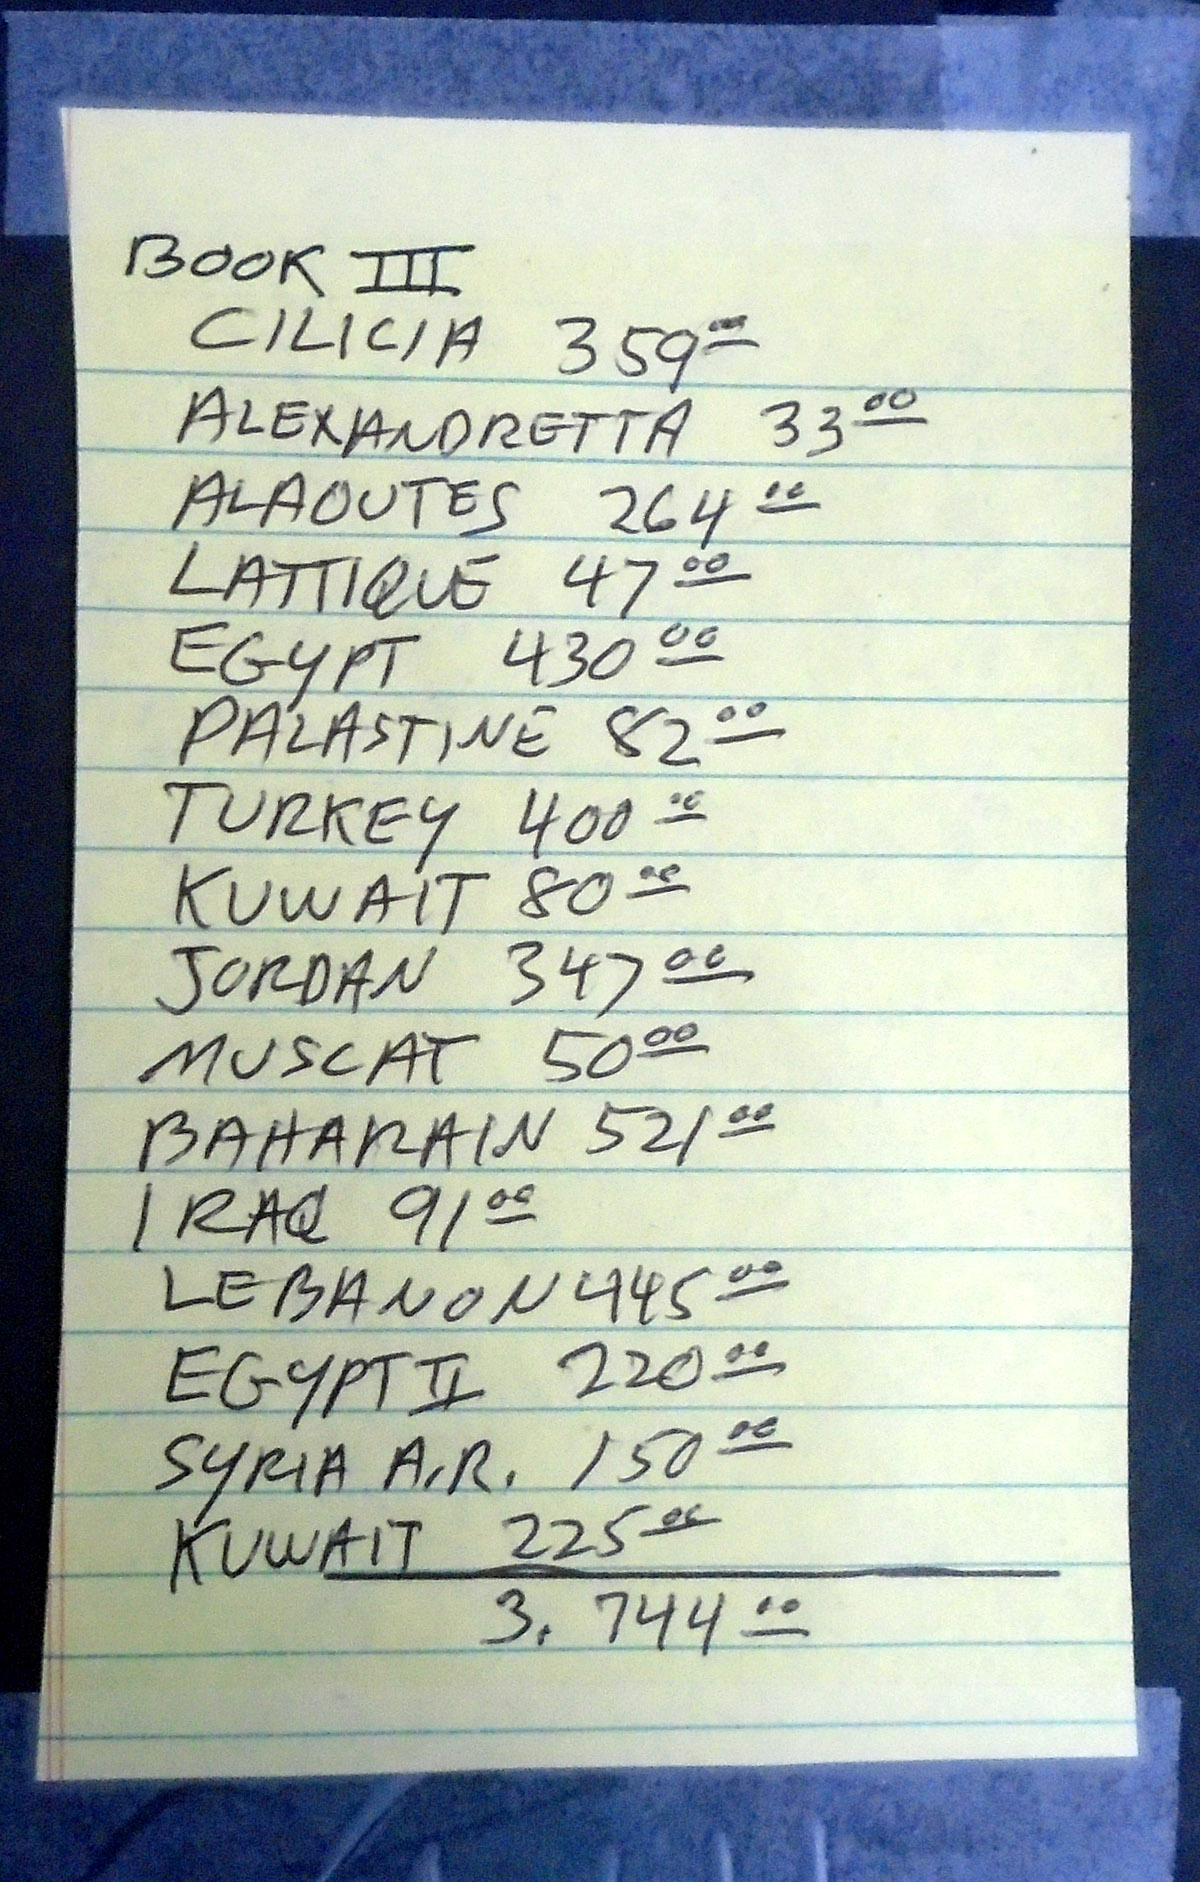 BOOK III
CILICIA 359 00
ALEXANDRETTA 33 00
ALAOUTES 264 00
LATTIQUE 47 00
EGYPT 430 00
PALASTINE 82 00
TURKEY 400 00
KUWAIT 80 00
JORDAN 347 00
MUSCAT 50 00
BAHARAIN 521 00
IRAQ 91 00
LEBANON 445 00
EGYPT II 220 00
SYRIA A.R. 150 00
KUWAIT 225 00
3. 744 00